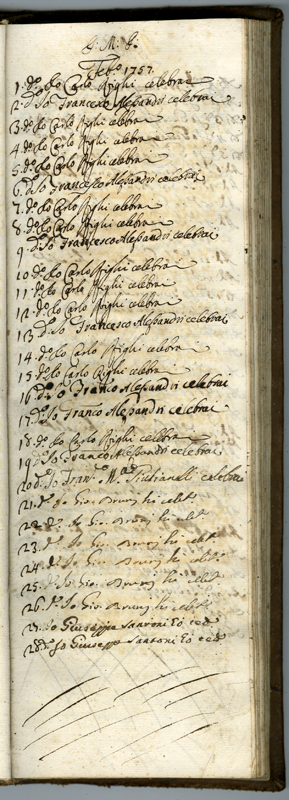 G. M. G.
Feb.o 1757
1. d.o Io Carlo Righi celebrai
2. d.o Io Francesco Alessandri celebrai
3. d.o Io Carlo Righi celebrai
4. d.o Io Carlo Righi celebrai
5. d.o Io Carlo Righi celebrai
6. d.o Io Francesco Alessandri celebrai
7. d.o Io Carlo Righi celebrai
8. d.o Io Carlo Righi celebrai
9. d.o Io Francesco Alessandri celebrai
10. d.o Io Carlo Righi celebrai
11. d.o Io Carlo Righi celebrai
12. d.o Io Carlo Righi celebrai
13. d.o Io Francesco Alessandri celebrai
14. d.o Io Carlo Righi celebrai
15. d.o Io Carlo Righi celebrai
16. d.o Io Franco Alessandri celebrai
17. d.o Io Franco Alessandri celebrai
18. d.o Io Carlo Righi celebrai
19. d.o Io Franco Alessandri celebrai
20. d.o Io Fran.co M.a Giulianelli celebrai
21. d.o Io Gio: Brunj ho celt.o
22. d.o Io Gio: Brunj ho celt.o
23. d.o Io Gio: Brunj ho celt.o
24. d.o Io Gio: Brunj ho celt.o
25. d.o Io Gio: Brunj ho celt.o
26. d.o Io Gio: Brunj ho celt.o
27. Io Giuseppe Santoni
28. d.o Io Giuseppe Santoni